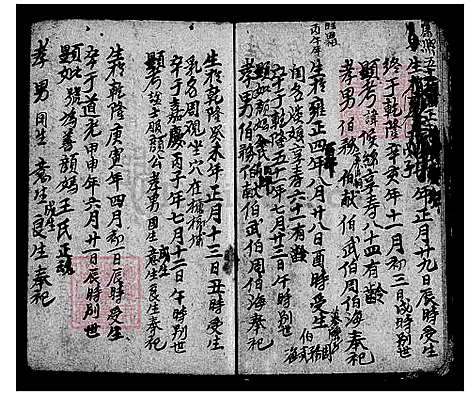 年正月十九日辰時受生
終于乾隆辛亥年十一月初三日戌時別世
顯考諱候緞享壽八十四有齡
孝男伯務伯献伯武伯周伯海奉祀
生於雍正四年八月廿八日酉時受生
丙午年
閨名
娘享壽六十一有齡
卒于乾隆五十一年七月廿三日午時別世
孝男伯務伯献伯武伯周伯海奉祀
生於乾隆癸未年正月十三日丑時受生
乳名周觀坐穴在
卒于嘉慶丙子年七月十二日午時別世
顯考諡士服顏公孝男同生喬生良生奉祀
成生
生於乾隆庚寅年四月初一日辰時受生
卒于道光甲申年六月廿一日辰時別世
顯妣號為善顏媽王氏正魂
孝男同生喬生成生良生奉祀